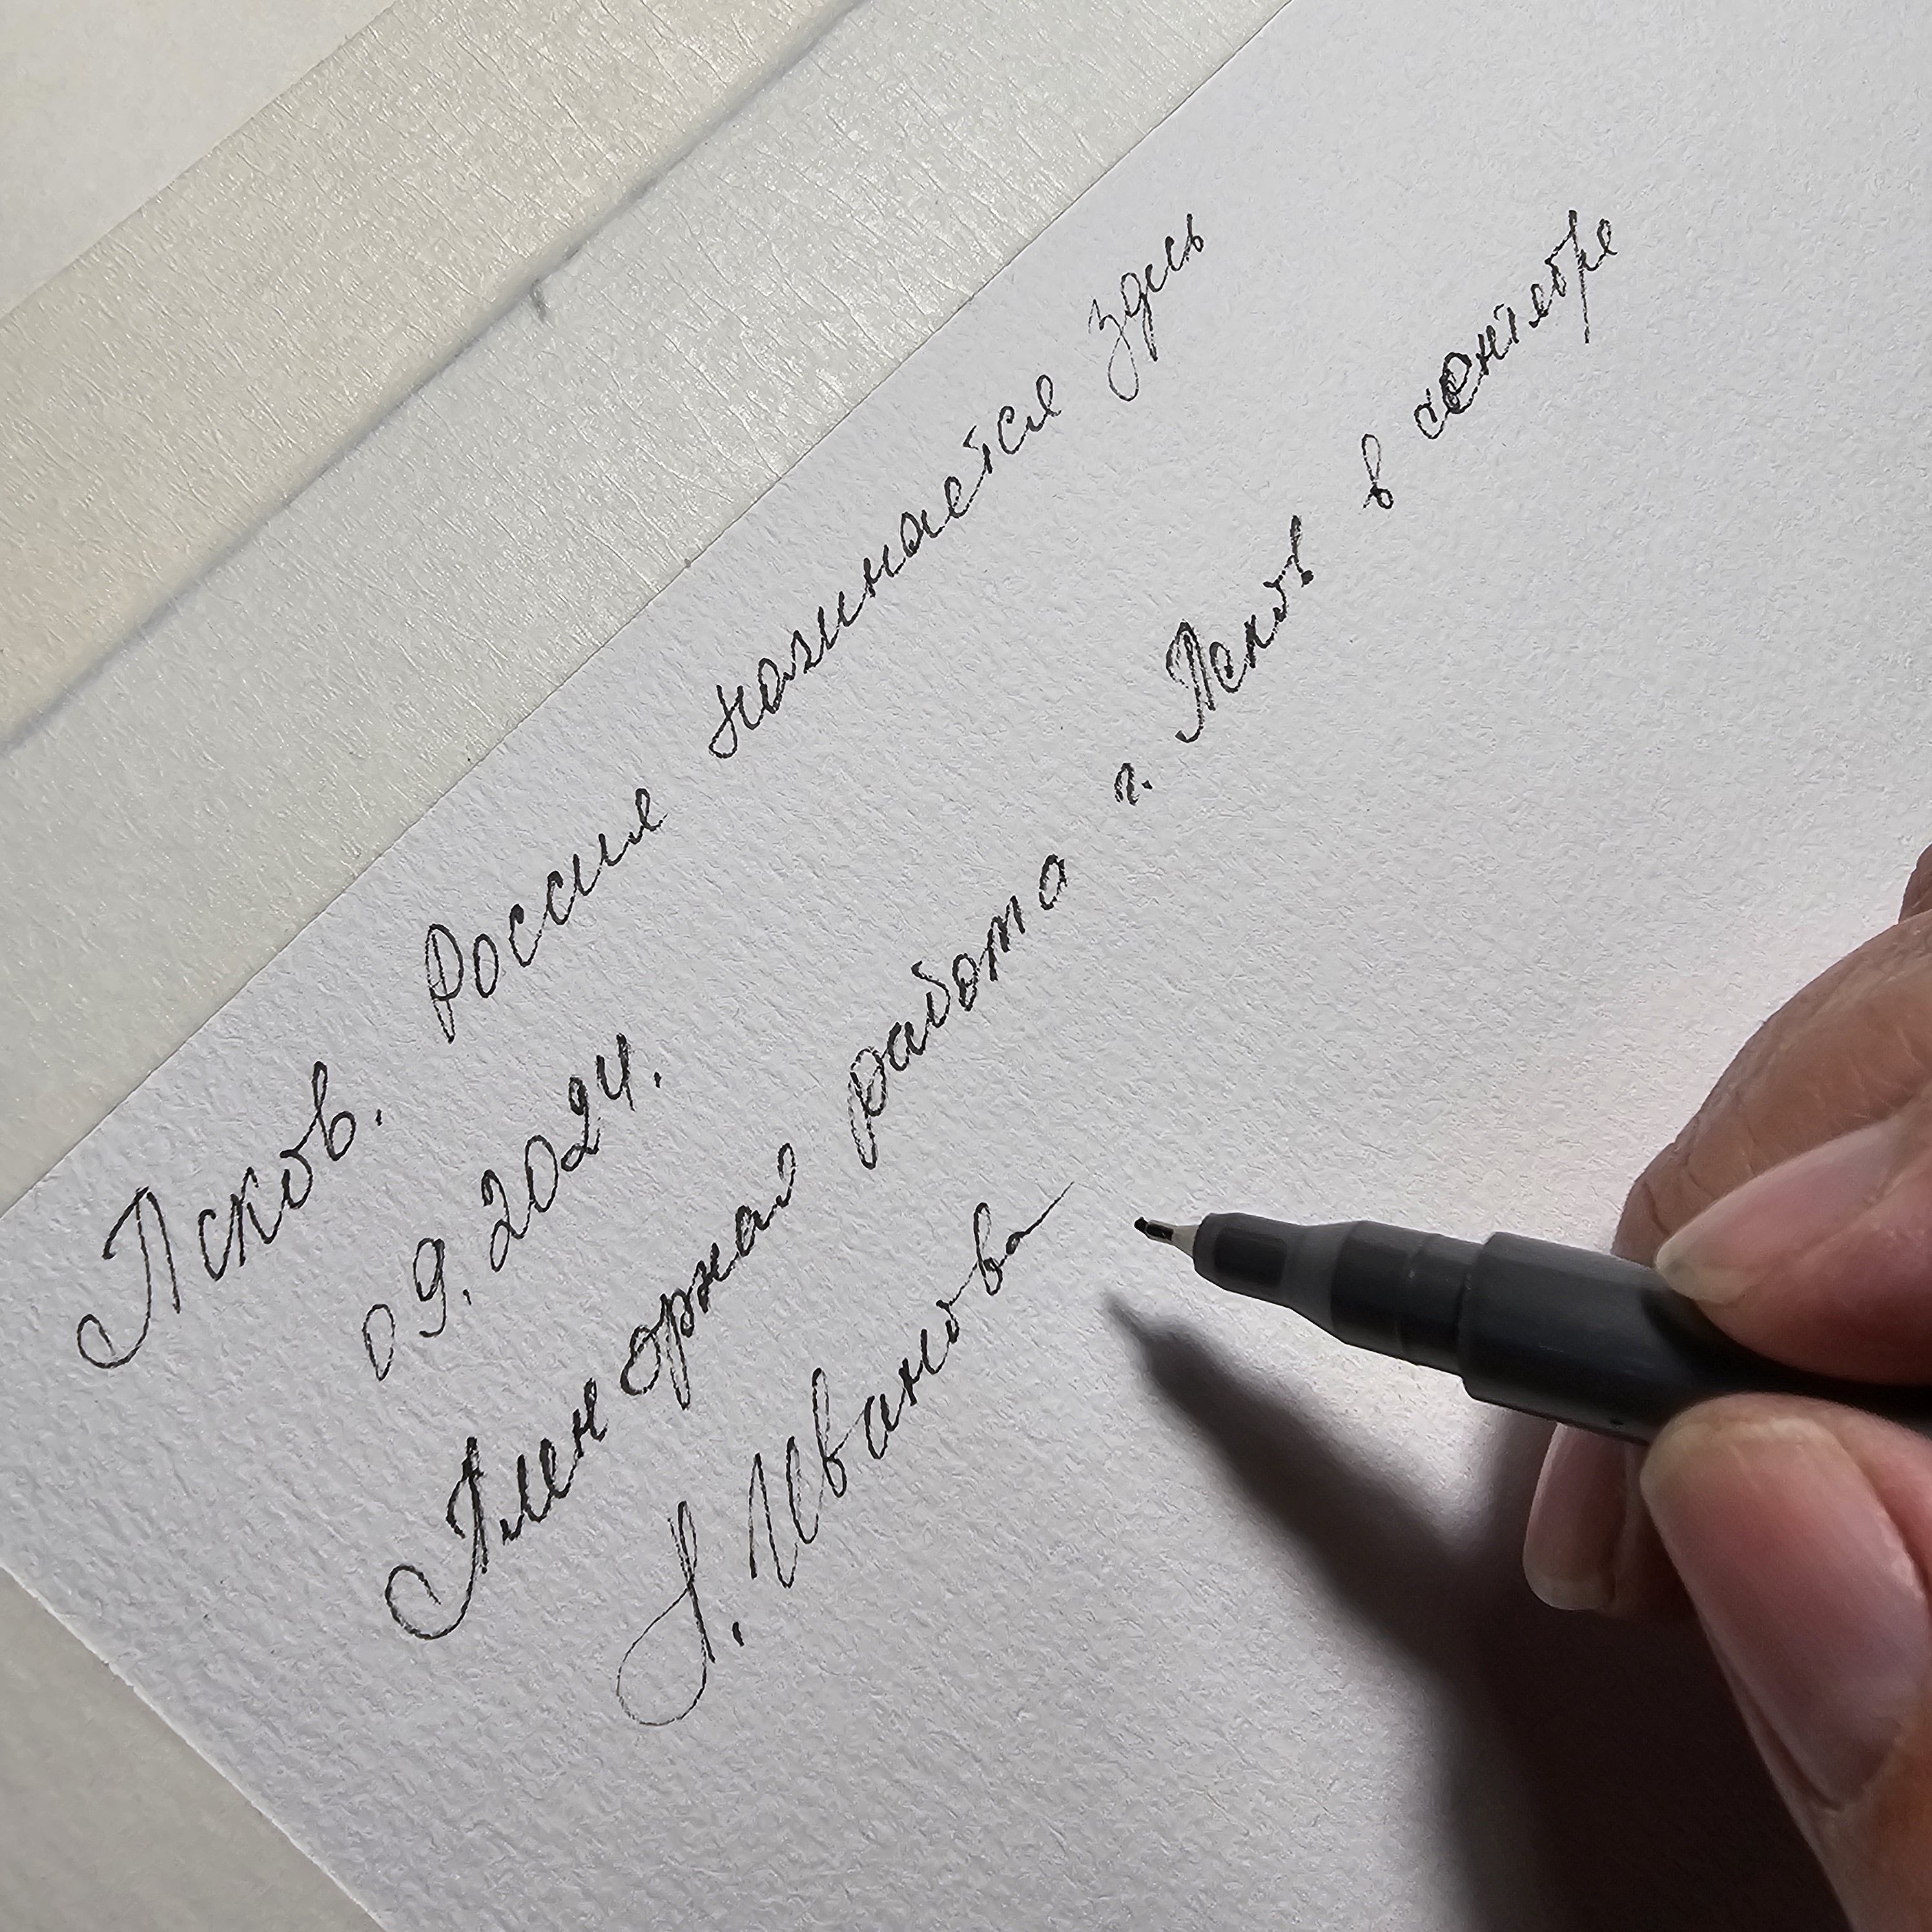 Псков. Россия начинается здесь
09.2024.
Пленэрная работа г. Псков в сентябре
Л. Иванова